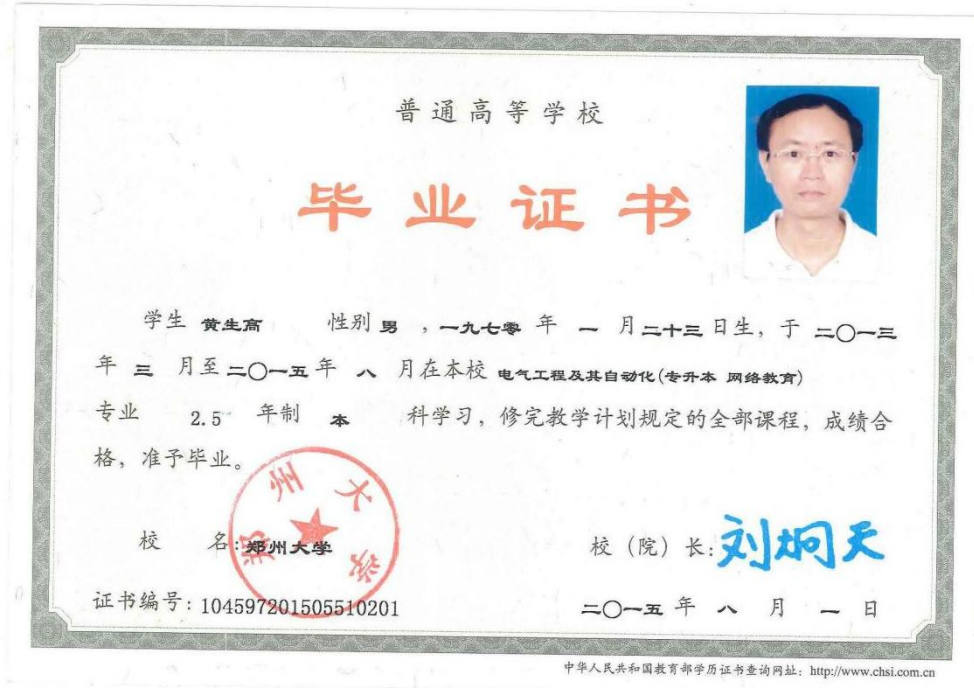 普通高等学校
毕业证书
学生 黄生高 性别 男 ，一九七零 年 一 月二十三日生，于 二〇一三
年 三 月至二〇一五年 八 月在本校 电气工程及其自动化(专升本 网络教育)
专业 2.5 年制 本 科学习，修完教学计划规定的全部课程，成绩合
格，准予毕业。
郑州大学
校 名:郑州大学 校（院）长:刘炯天
证书编号:104597201505510201 二〇一五 年 八 月 一 日
中华人民共和国教育部学历证书查询网址：http://www.chsi.com.cn